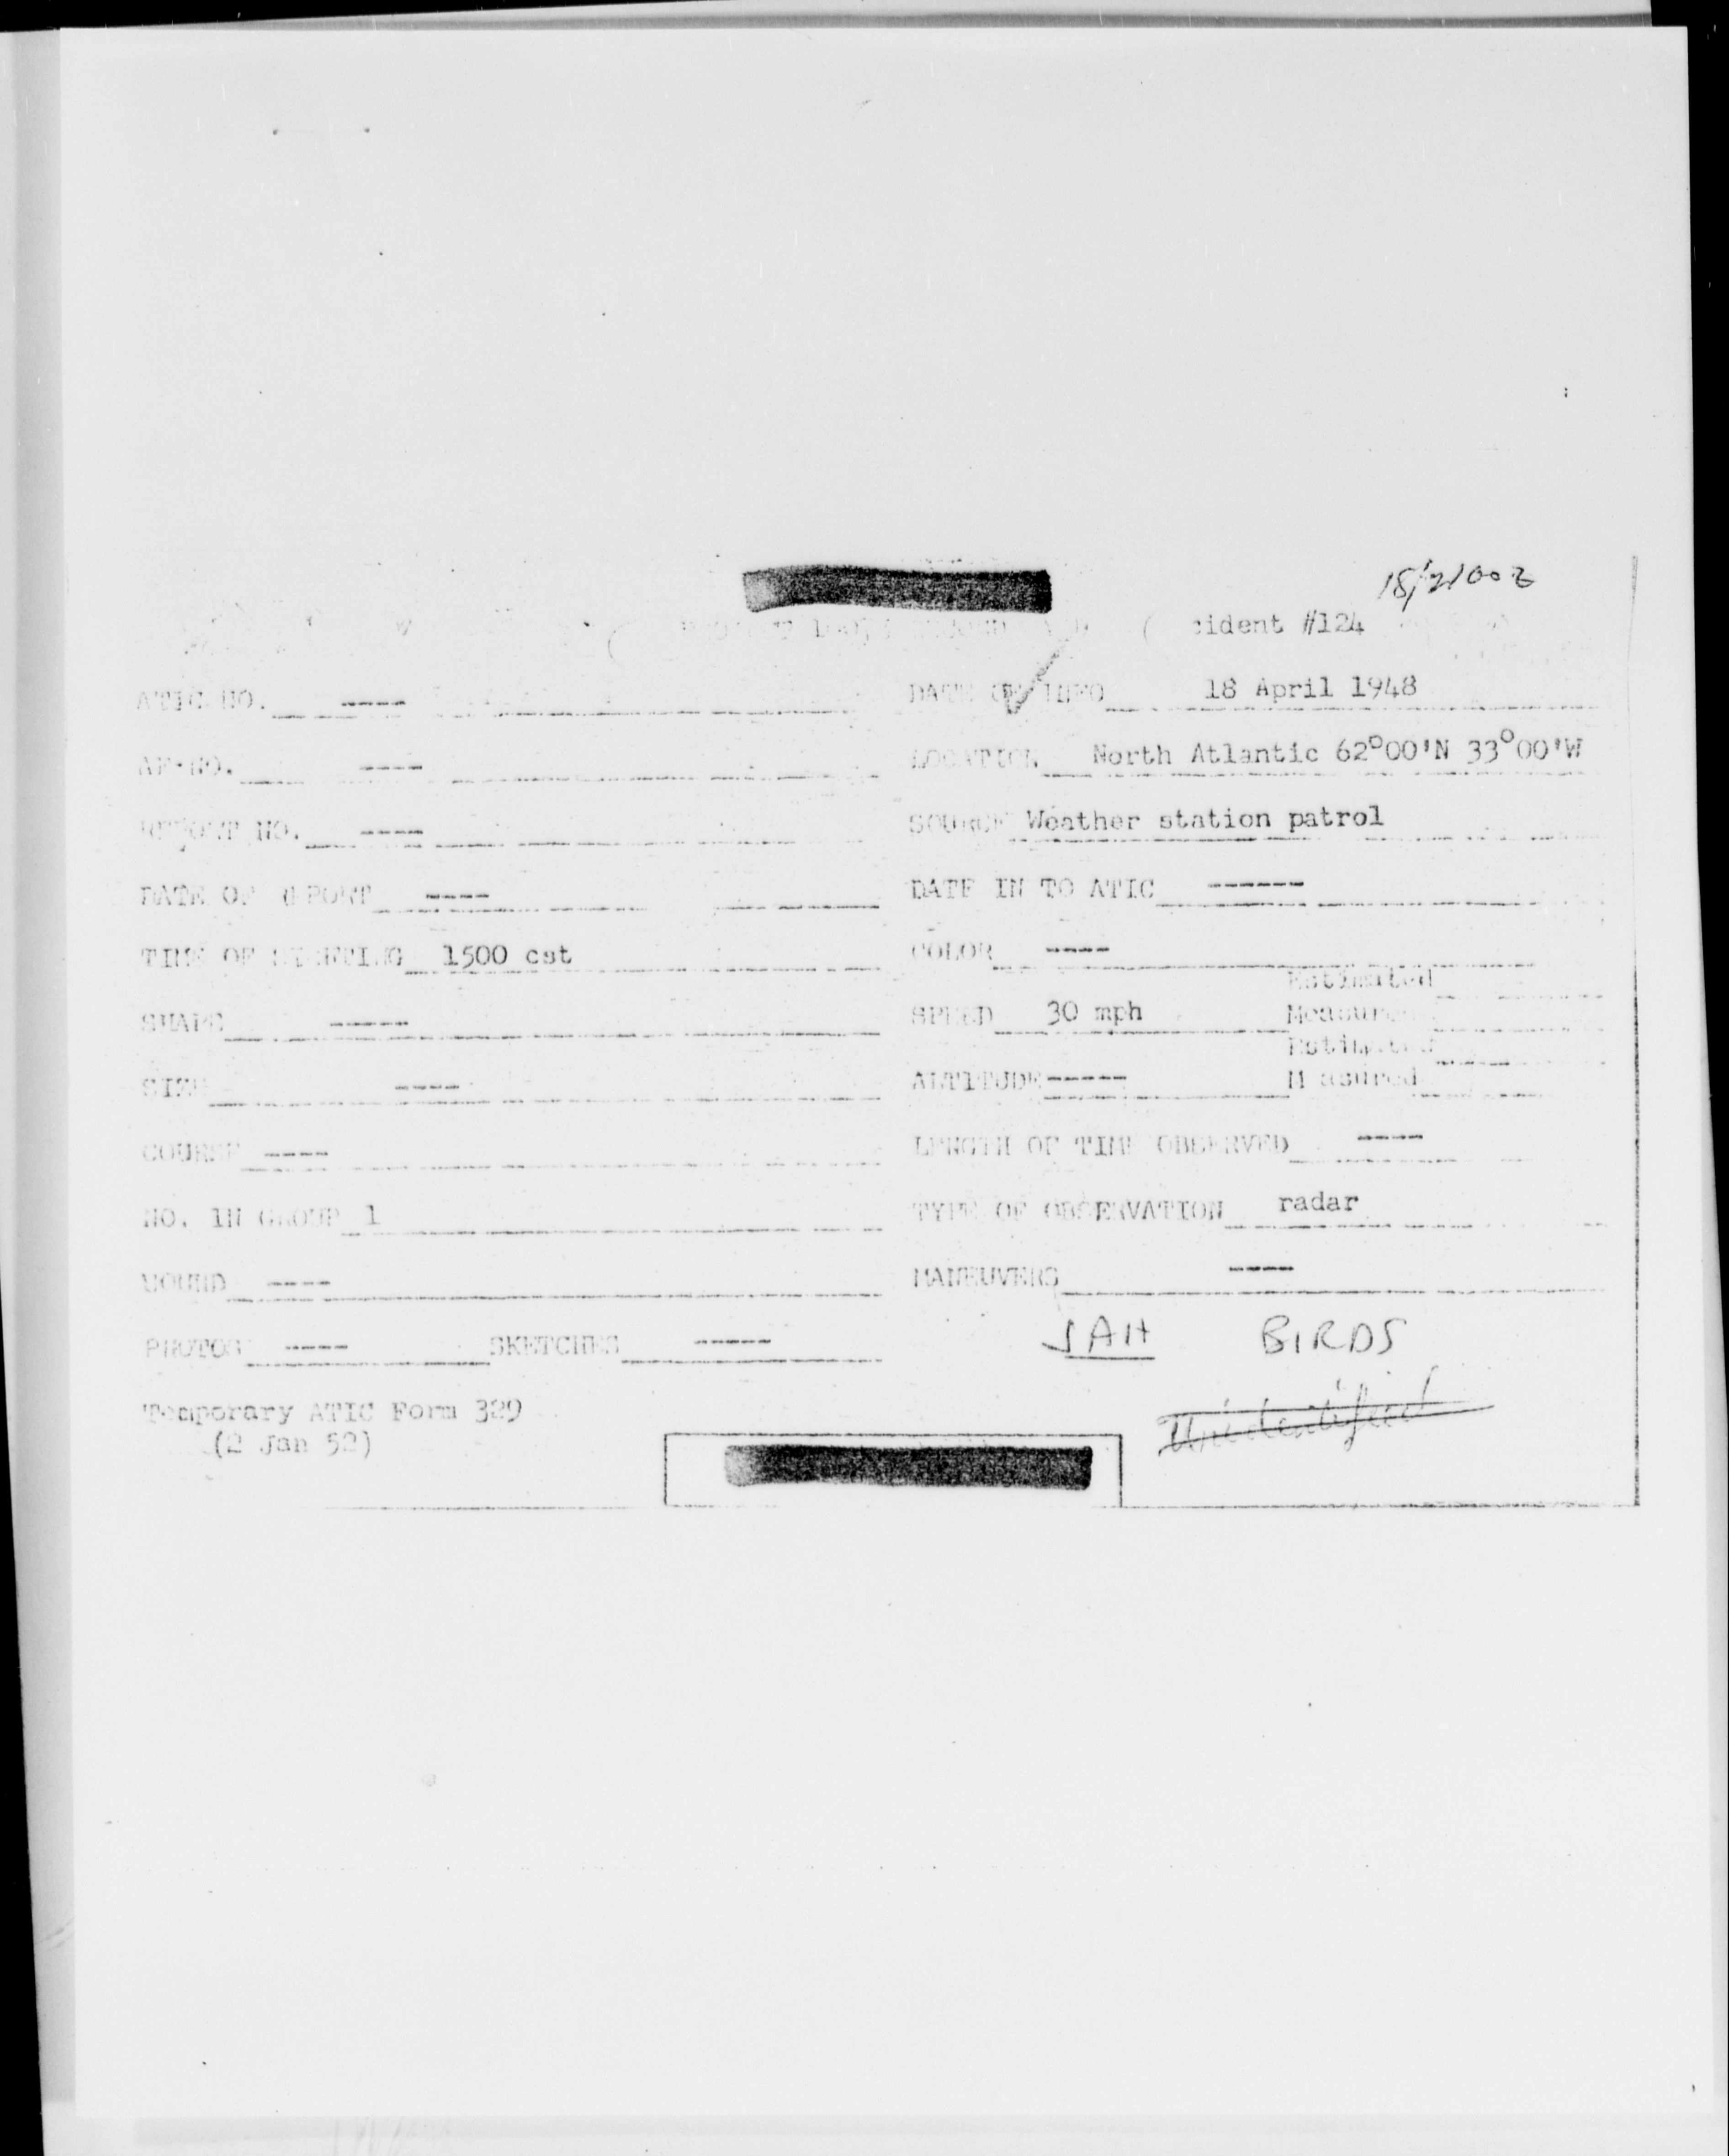 18/2100z
( PROJECT 10073 RECORD CARD ( cident #124
ATIC NO. ----
DATE OF INFO 18 April 1948
AF NO. ----
LOCATION North Atlantic 62°00'N 33°00'W
REPORT NO. ----
SOURCE Weather station patrol
DATE OF REPORT ----
DATE IN TO ATIC ------
TIME OF SIGHTING 1500 cst
COLOR ----
SHAPE -----
SPEED 30 mph
Estimated
Measured
SIZE ----
ALTITUDE -----
Estimated
Measured
COURSE ----
LENGTH OF TIME OBSERVED ----
NO. IN GROUP 1
TYPE OF OBSERVATION radar
SOUND ----
MANEUVERS ----
PHOTOS ----
SKETCHES -----
JAH BIRDS
Unidentified
Temporary ATIC Form 329
(2 Jan 52)